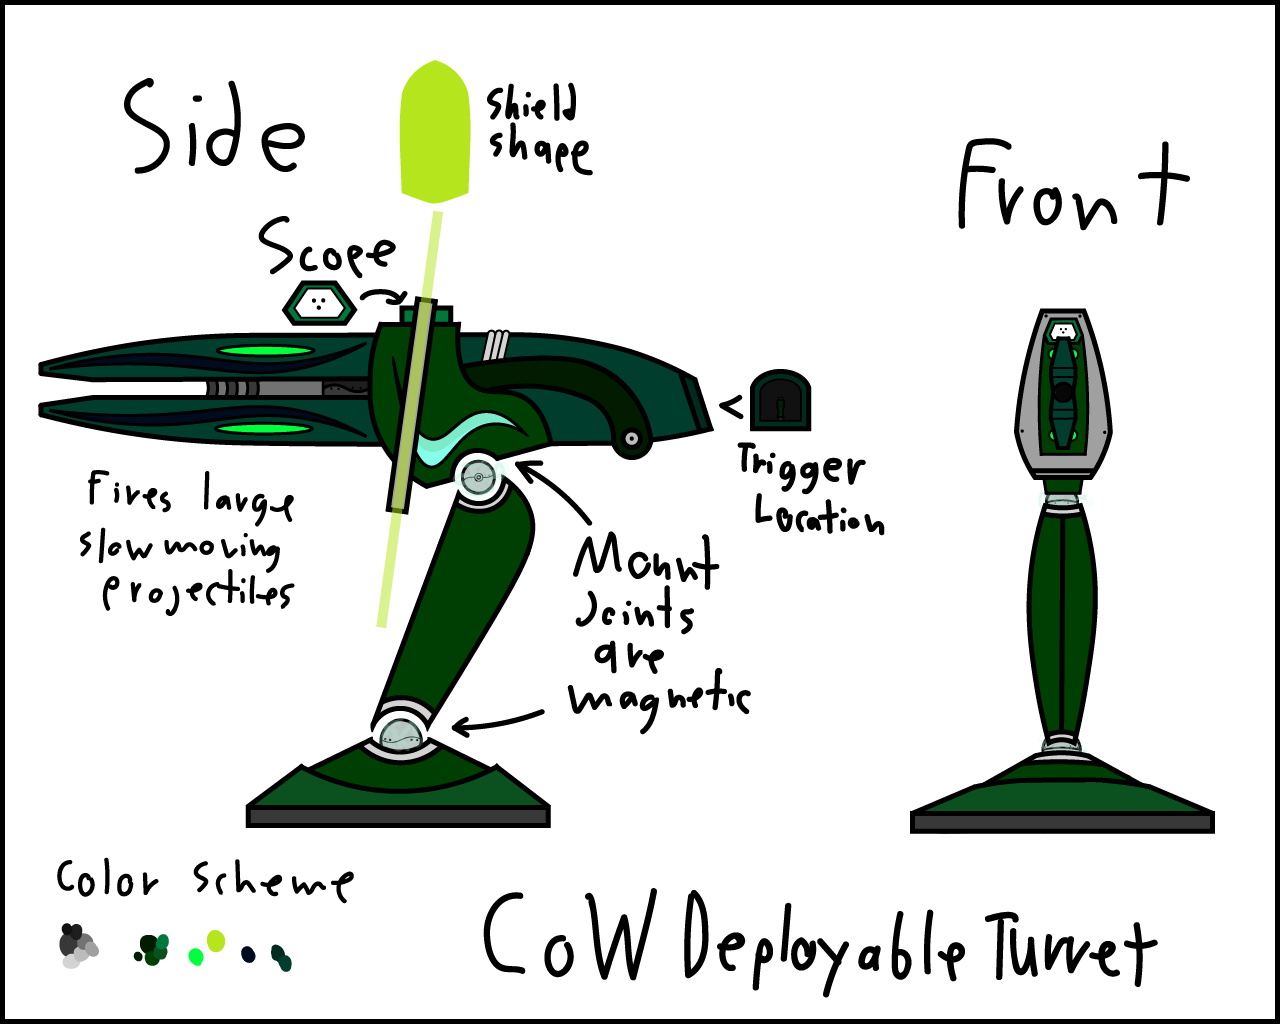 Side
Shield
shape
Front
Scope
Trigger
Location
Fires large
slow moving
projectiles
Mount
Joints
are
magnetic
Color Scheme
CoW Deployable Turret